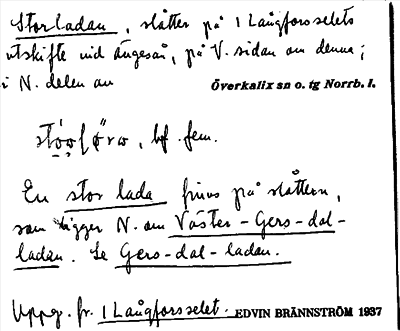 Storladan, slåtter på 1 Långforsselets
utskifte vid Ängesån, på V. sidan om denna;
i N. delen av
Överkalix sn o. tg Norrb. l.
bf. fem.
En stor lada finns på slåttern,
som ligger N. om Väster-Gers-dal-
ladan. Se Gers-dal-ladan.
Uppg. fr. 1 Långforsselet.
EDVIN BRÄNNSTRÖM 1937